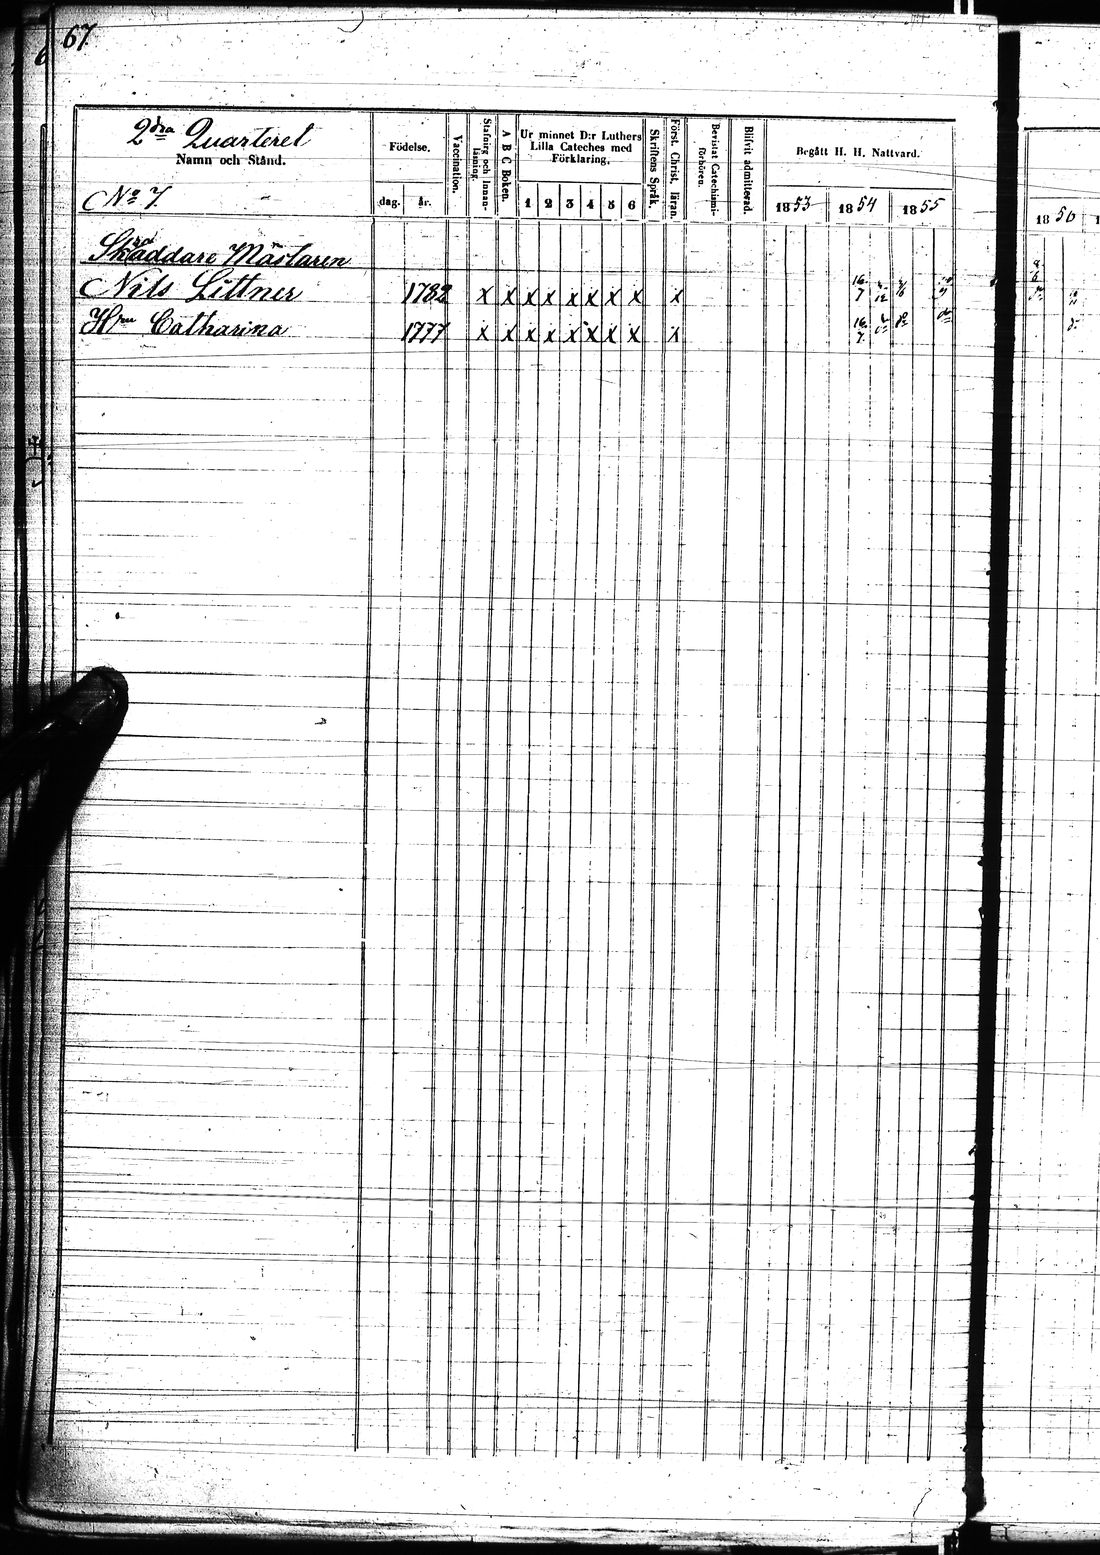 67.
2dra Quarteret
Namn och Stånd.
No 7.
Födelse.
dag. år.
Vaccination.
Stafning och Innanläsning.
A B C Boken.
Ur minnet D:r Luthers
Lilla Cateches med
Förklaring.
1 2 3 4 5 6
Skriftens Språk.
Först. Christ. läran.
Bevistat Catechismiförhören.
Blifvit admitterad.
Begått H. H. Nattvard.
1853 1854 1855
1856
Skräddare Mästaren
Nils Littner 1782 x x x x x x x x x
Hru Catharina 1777 x x x x x x x x x